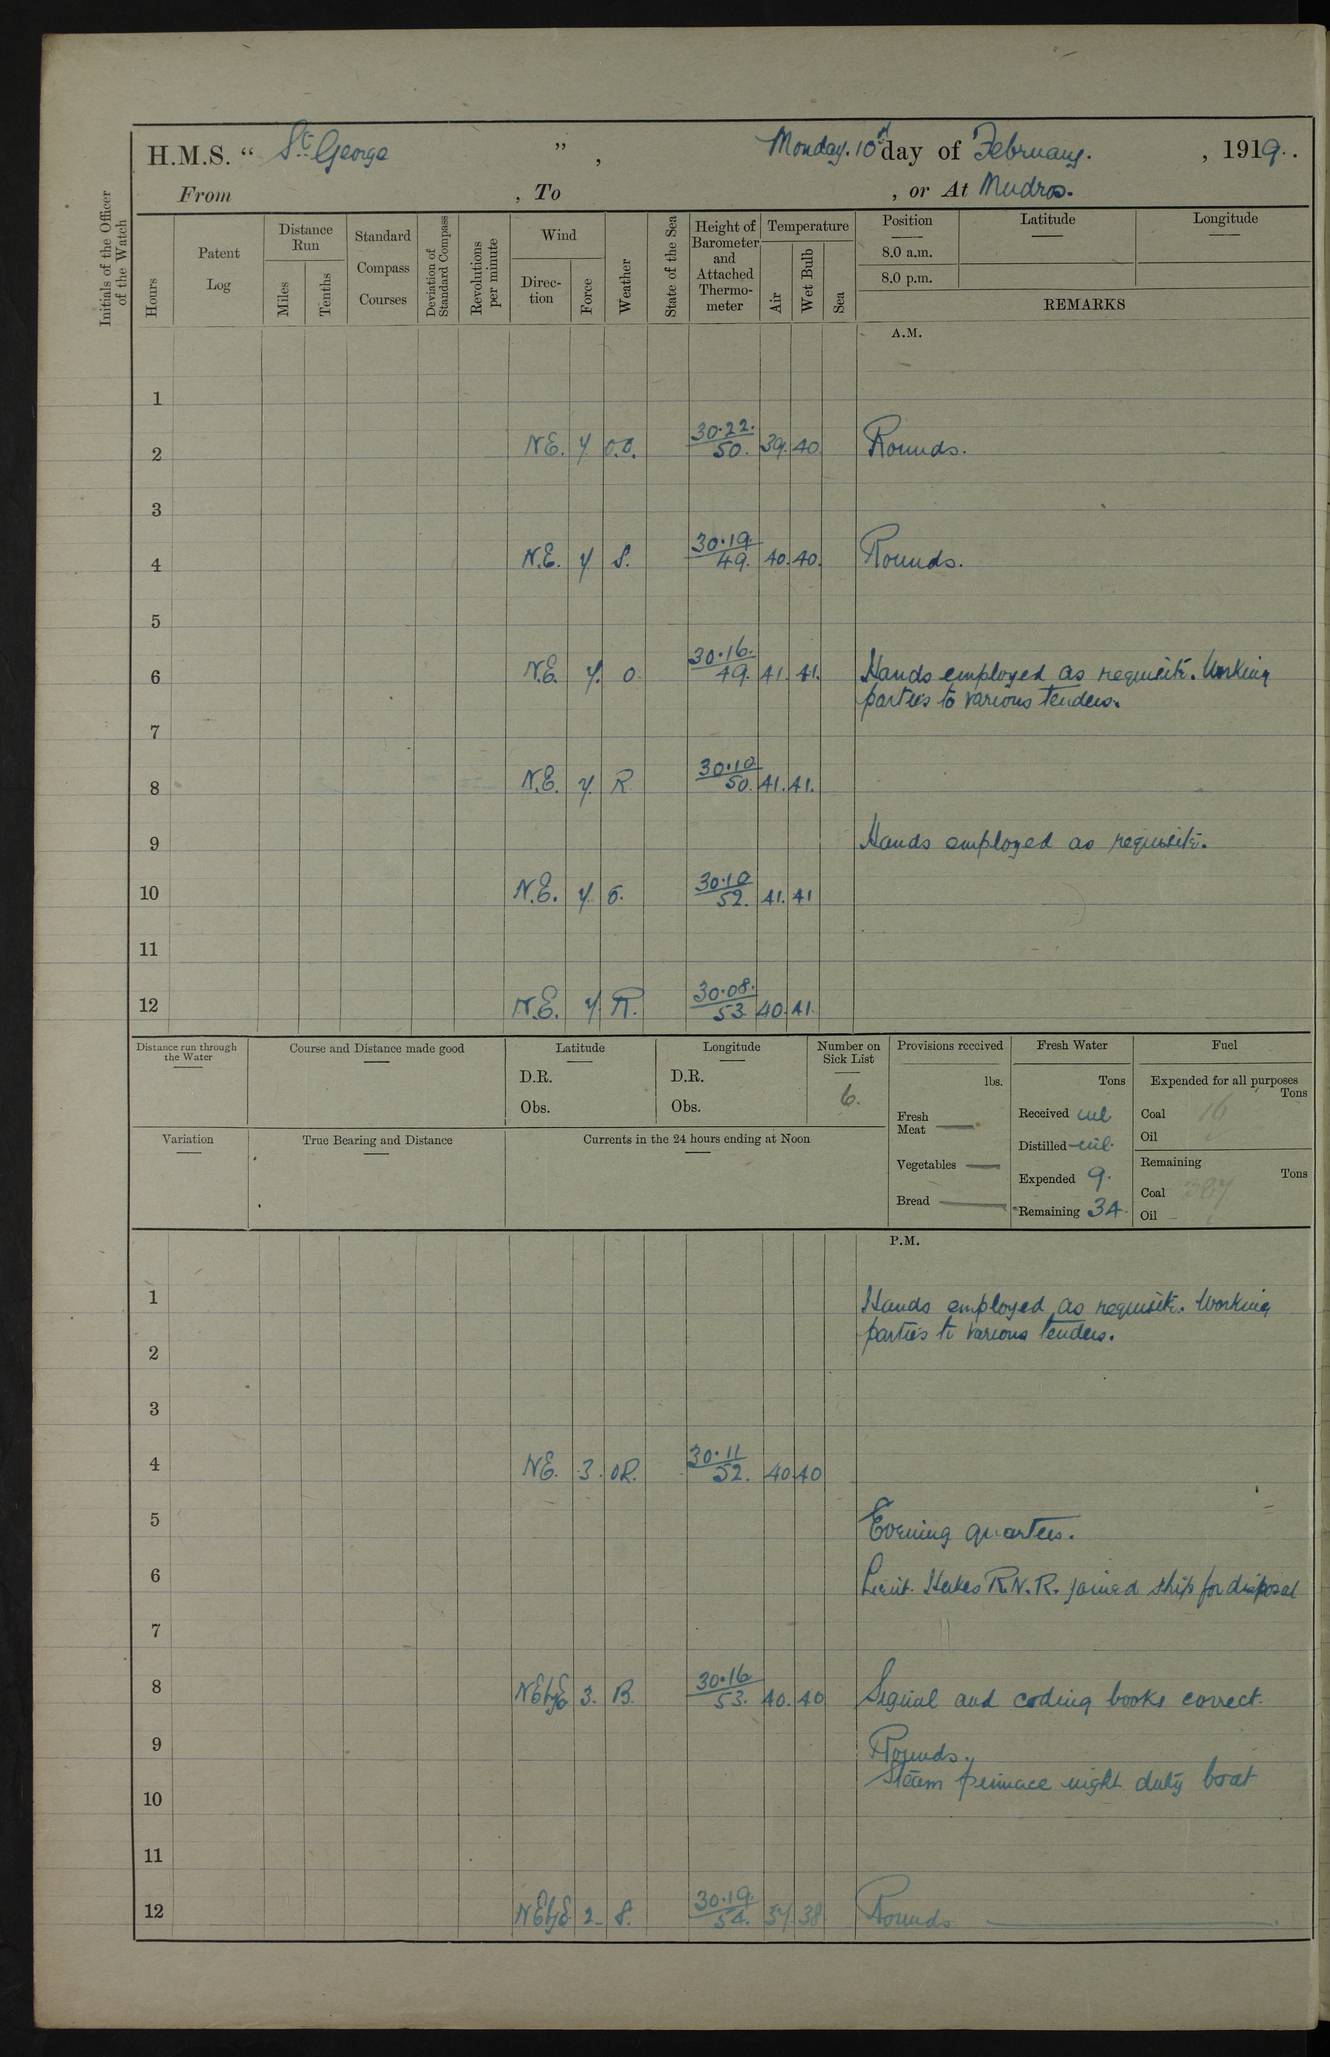 H.M.S. “ St George ” , Monday. 10th day of February. , 1919..
From , To , or At Mudros.
Initials of the Officer of the Watch
Hours
Patent Log
Distance Run
Miles
Tenths
Standard Compass Courses
Deviation of Standard Compass
Revolutions per minute
Wind
Direc-tion
Force
Weather
State of the Sea
Height of Barometer and Attached Thermo-meter
Temperature
Air
Wet Bulb
Sea
Position Latitude Longitude
8.0 a.m.
8.0 p.m.
REMARKS
A.M.
1
2 N.E. 7 O.O. 30.22. 50. 39. 40 Rounds.
3
4 N.E. 7 S. 30.19. 49. 40. 40. Rounds.
5
6 N.E. 7. O. 30.16. 49. 41. 41. Hands employed as requisite. Working
parties to various tenders.
7
8 N.E. 7. R 30.10 50. 41. 41.
9 Hands employed as requisite.
10 N.E. 7. O. 30.10 52. 41. 41
11
12 N.E. 7. R. 30.08. 53 40. 41.
Distance run through the Water
Course and Distance made good
Latitude
D.R.
Obs.
Longitude
D.R.
Obs.
Number on Sick List
6.
Provisions received
lbs.
Fresh Meat
Vegetables
Bread
Fresh Water
Tons
Received nil
Distilled nil.
Expended 9.
Remaining 34.
Fuel
Expended for all purposes
Tons
Coal 16
Oil
Remaining
Tons
Coal
Oil
Variation
True Bearing and Distance
Currents in the 24 hours ending at Noon
P.M.
1 Hands employed as requisite. Working
parties to various tenders.
2
3
4 NE. 3. OR. 30.11 52. 40. 40
5 Evening quarters.
6 Lieut. Hakes R.N.R. joined ship for disposal
7
8 NEbyE 3. B. 30.16 53. 40. 40 Signal and coding books correct.
9 Rounds.
Steam pinnace night duty boat
10
11
12 NEbyE 2. S. 30.19. 54. 37. 38 Rounds